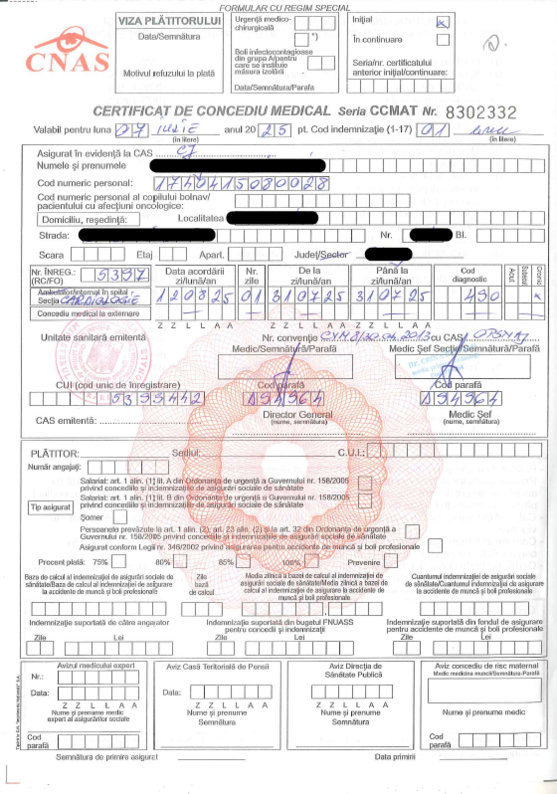 FORMULAR CU REGIM SPECIAL
CNAS
VIZA PLĂTITORULUI
Data/Semnătura
Motivul refuzului la plată
Urgență medico-chirurgicală
*)
Boli infectocontagioase din grupa A/pentru care se instituie măsura izolării
Data/Semnătura/Parafa
Inițial x
În continuare
Seria/nr. certificatului anterior inițial/continuare:
CERTIFICAT DE CONCEDIU MEDICAL Seria CCMAT Nr. 8302332
Valabil pentru luna 07 iulie anul 2025 pt. Cod indemnizație (1-17) 01 unu
(în litere) (în litere)
Asigurat în evidență la CAS CJ
Numele și prenumele
Cod numeric personal: 1740415080028
Cod numeric personal al copilului bolnav/
pacientului cu afecțiuni oncologice:
Domiciliu, reședință: Localitatea
Strada: Nr. Bl.
Scara Etaj Apart. Județ/Sector
Nr. ÎNREG.: (RC/FO) 5397
Data acordării zi/lună/an Nr. zile De la zi/lună/an Până la zi/lună/an Cod diagnostic Acut Subacut Cronic
Ambulatoriu/internat în spital
Secția CARDIOLOGIE 120825 01 310725 310725 490 x
Concediu medical la externare
Z Z L L A A Z Z L L A A Z Z L L A A
Unitate sanitară emitentă
Nr. convenție 30.04.2013 cu CAS OPSNAJ
Medic/Semnătură/Parafă Medic Șef Secție/Semnătură/Parafă
CUI (cod unic de înregistrare) Cod parafă Cod parafă
5395442 194964 194964
CAS emitentă: Director General Medic Șef
(nume, semnătura) (nume, semnătura)
PLĂTITOR: Sediul: C.U.I.:
Număr angajați:
Tip asigurat
Salariat: art. 1 alin. (1) lit. A din Ordonanța de urgență a Guvernului nr. 158/2005
privind concediile și indemnizațiile de asigurări sociale de sănătate
Salariat: art. 1 alin. (1) lit. B din Ordonanța de urgență a Guvernului nr. 158/2005
privind concediile și indemnizațiile de asigurări sociale de sănătate
Șomer
Persoanele prevăzute la art. 1 alin. (2), art. 23 alin. (2) și la art. 32 din Ordonanța de urgență a
Guvernului nr. 158/2005 privind concediile și indemnizațiile de asigurări sociale de sănătate
Asigurat conform Legii nr. 346/2002 privind asigurarea pentru accidente de muncă și boli profesionale
Procent calcul: 75% 80% 85% 100% Prevenire
Baza de calcul al indemnizației de asigurări sociale de sănătate/Baza de calcul al indemnizației de asigurare la accidente de muncă și boli profesionale
Zile bază de calcul
Media zilnică a bazei de calcul al indemnizației de asigurări sociale de sănătate/Media zilnică a bazei de calcul al indemnizației de asigurare la accidente de muncă și boli profesionale
Cuantumul indemnizației de asigurări sociale de sănătate/Cuantumul indemnizației de asigurare la accidente de muncă și boli profesionale
Indemnizație suportată de către angajator
Indemnizație suportată din bugetul FNUASS pentru concedii și indemnizații
Indemnizație suportată din fondul de asigurare pentru accidente de muncă și boli profesionale
Zile Lei Zile Lei Zile Lei
Avizul medicului expert
Nr.:
Data:
Z Z L L A A
Nume și prenume medic expert al asigurărilor sociale
Cod parafă
Aviz Casă Teritorială de Pensii
Data:
Z Z L L A A
Nume și prenume
Semnătura
Aviz Direcția de Sănătate Publică
Z Z L L A A
Nume și prenume
Semnătura
Aviz concediu de risc maternal
Medic medicina muncii/Semnătura-Parafă
Nume și prenume medic
Cod parafă
Semnătura de primire asigurat Data primirii